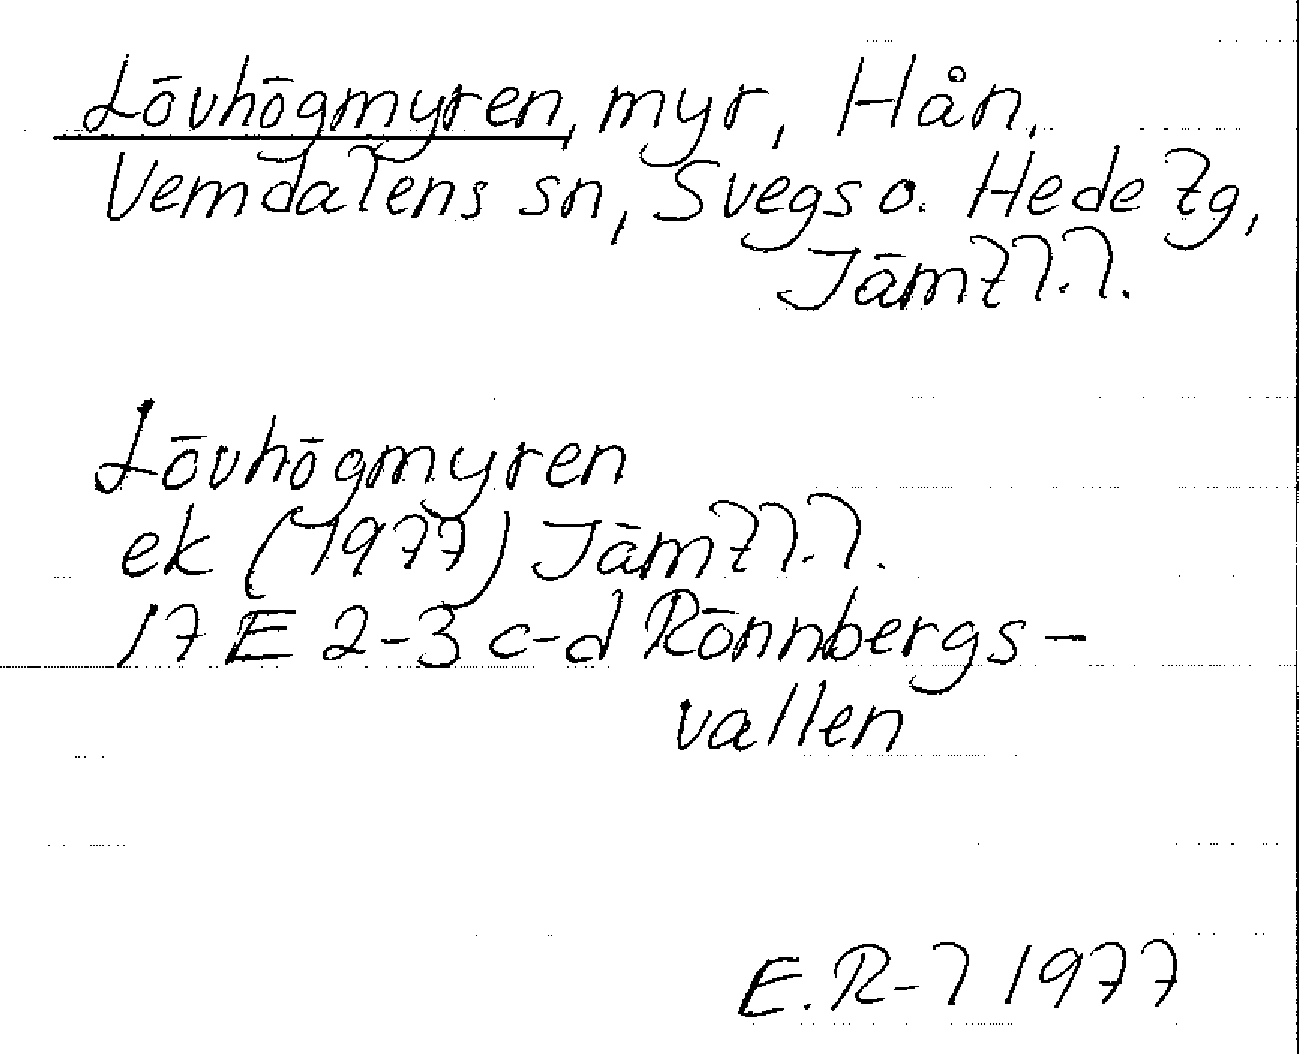 Lövhögmyren, myr, Hån,
Vemdalens sn, Svegs o. Hede tg,
Jämtl.l.
Lövhögmyren
ek (1977) Jämtl.l.
17 E 2-3 c-d Rönnbergs-
vallen
E.R-l 1977